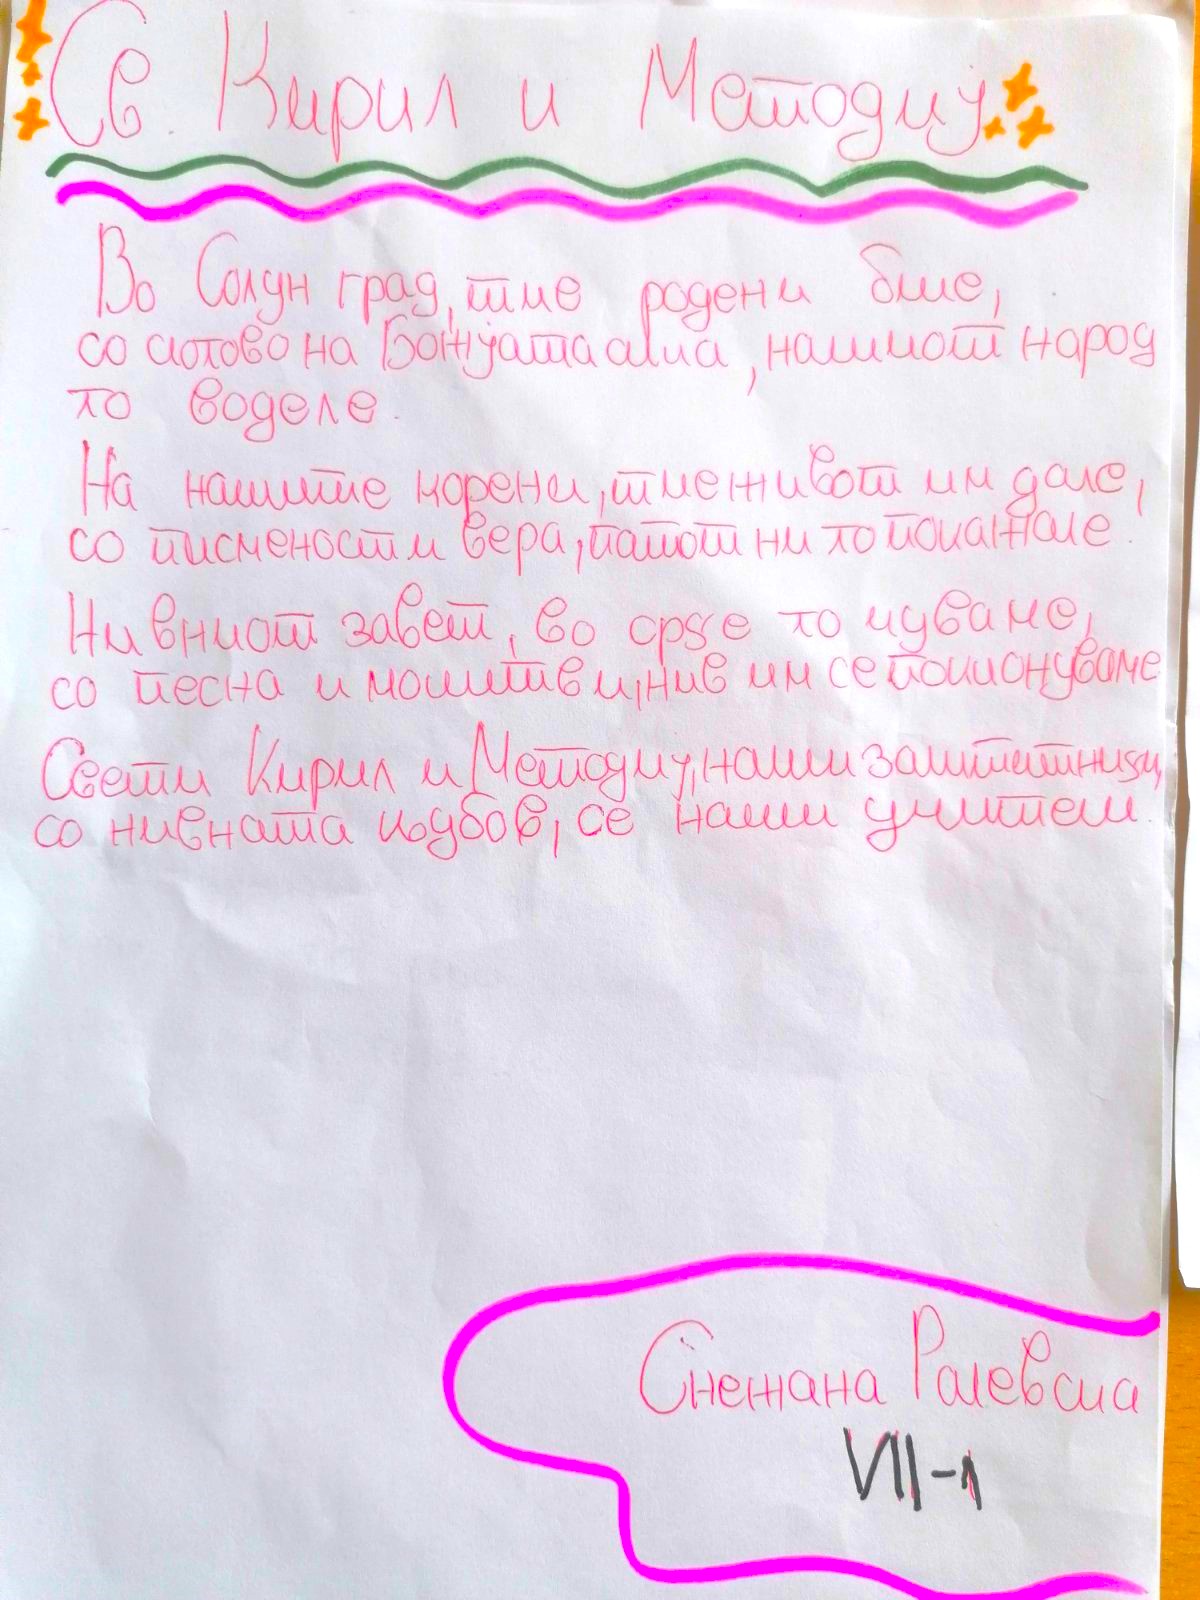 Св. Кирил и Методиј
Во Солун град, тие родени биле,
со слово на Божјата сила, нашиот народ
го воделе.
На нашите корени, тие живот им дале,
со писменост и вера, патот ни го покажале.
Нивниот завет, во срце го чуваме,
со песна и молитви, нив им се поклонуваме.
Свети Кирил и Методиј, наши заштитници,
со нивната љубов, се наши учители.
Снежана Ралевска
VII-1